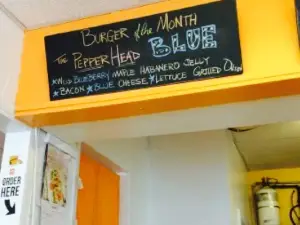 BURGER of the MONTH
THE PEPPER HEAD BLUE
★WILD BLUEBERRY MAPLE HABANERO JELLY
★BACON ★BLUE CHEESE ★LETTUCE GRILLED ONION
ORDER
HERE